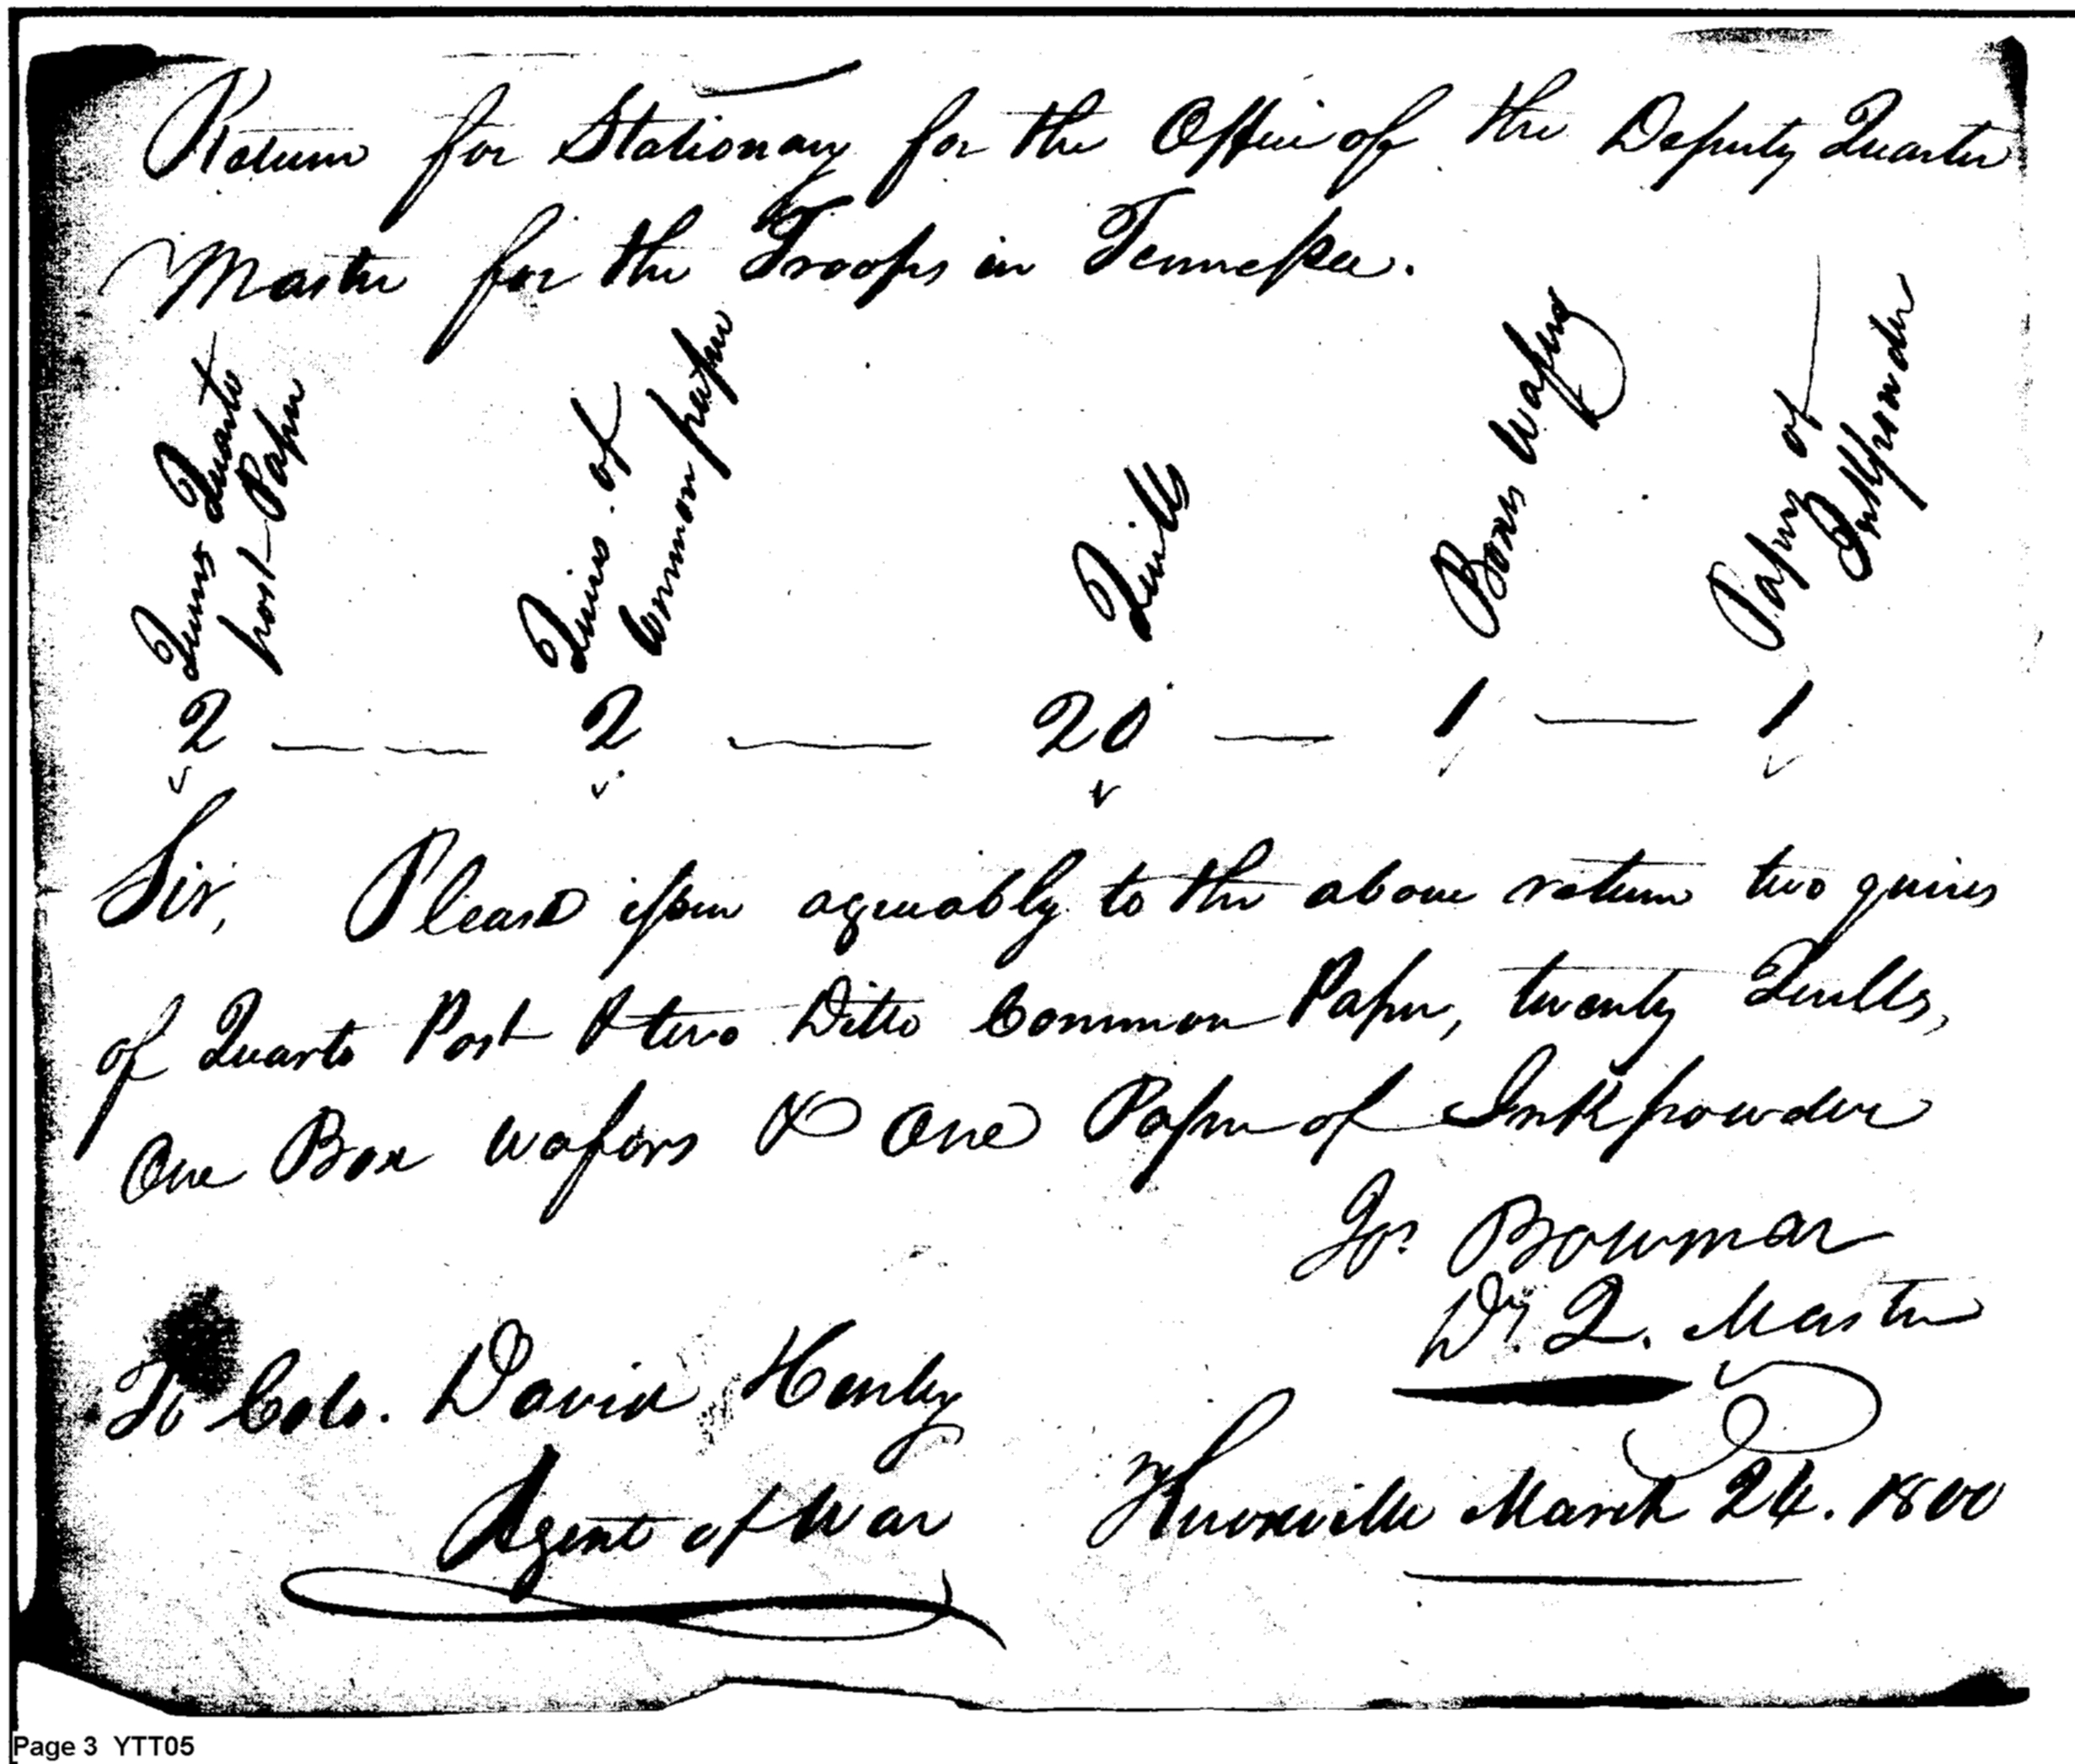 Return for Stationary for the Office of the Deputy Quarter
Master for the Troops in Tennessee.
Quires Quarto
post Paper
Quires of
Common paper
Quills
Boxes Wafers
Papers of
Inkpowder
2 — — 2 — 20 — 1 — 1
Sir, Please issue agreeably to the above return two quires
of Quarto Post & two Ditto Common Paper, twenty Quills,
One Box wafers & One Paper of Inkpowder
Jos. Bowmar
Dy. Q. Master
To Colo. David Henley
Agent of War
Knoxville March 24. 1800
Page 3 YTT05